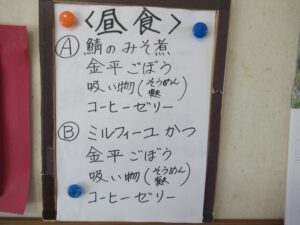 <昼食>
Ⓐ 鯖のみそ煮
金平ごぼう
吸い物(そうめん 麩)
コーヒーゼリー
Ⓑ ミルフィーユかつ
金平ごぼう
吸い物(そうめん 麩)
コーヒーゼリー